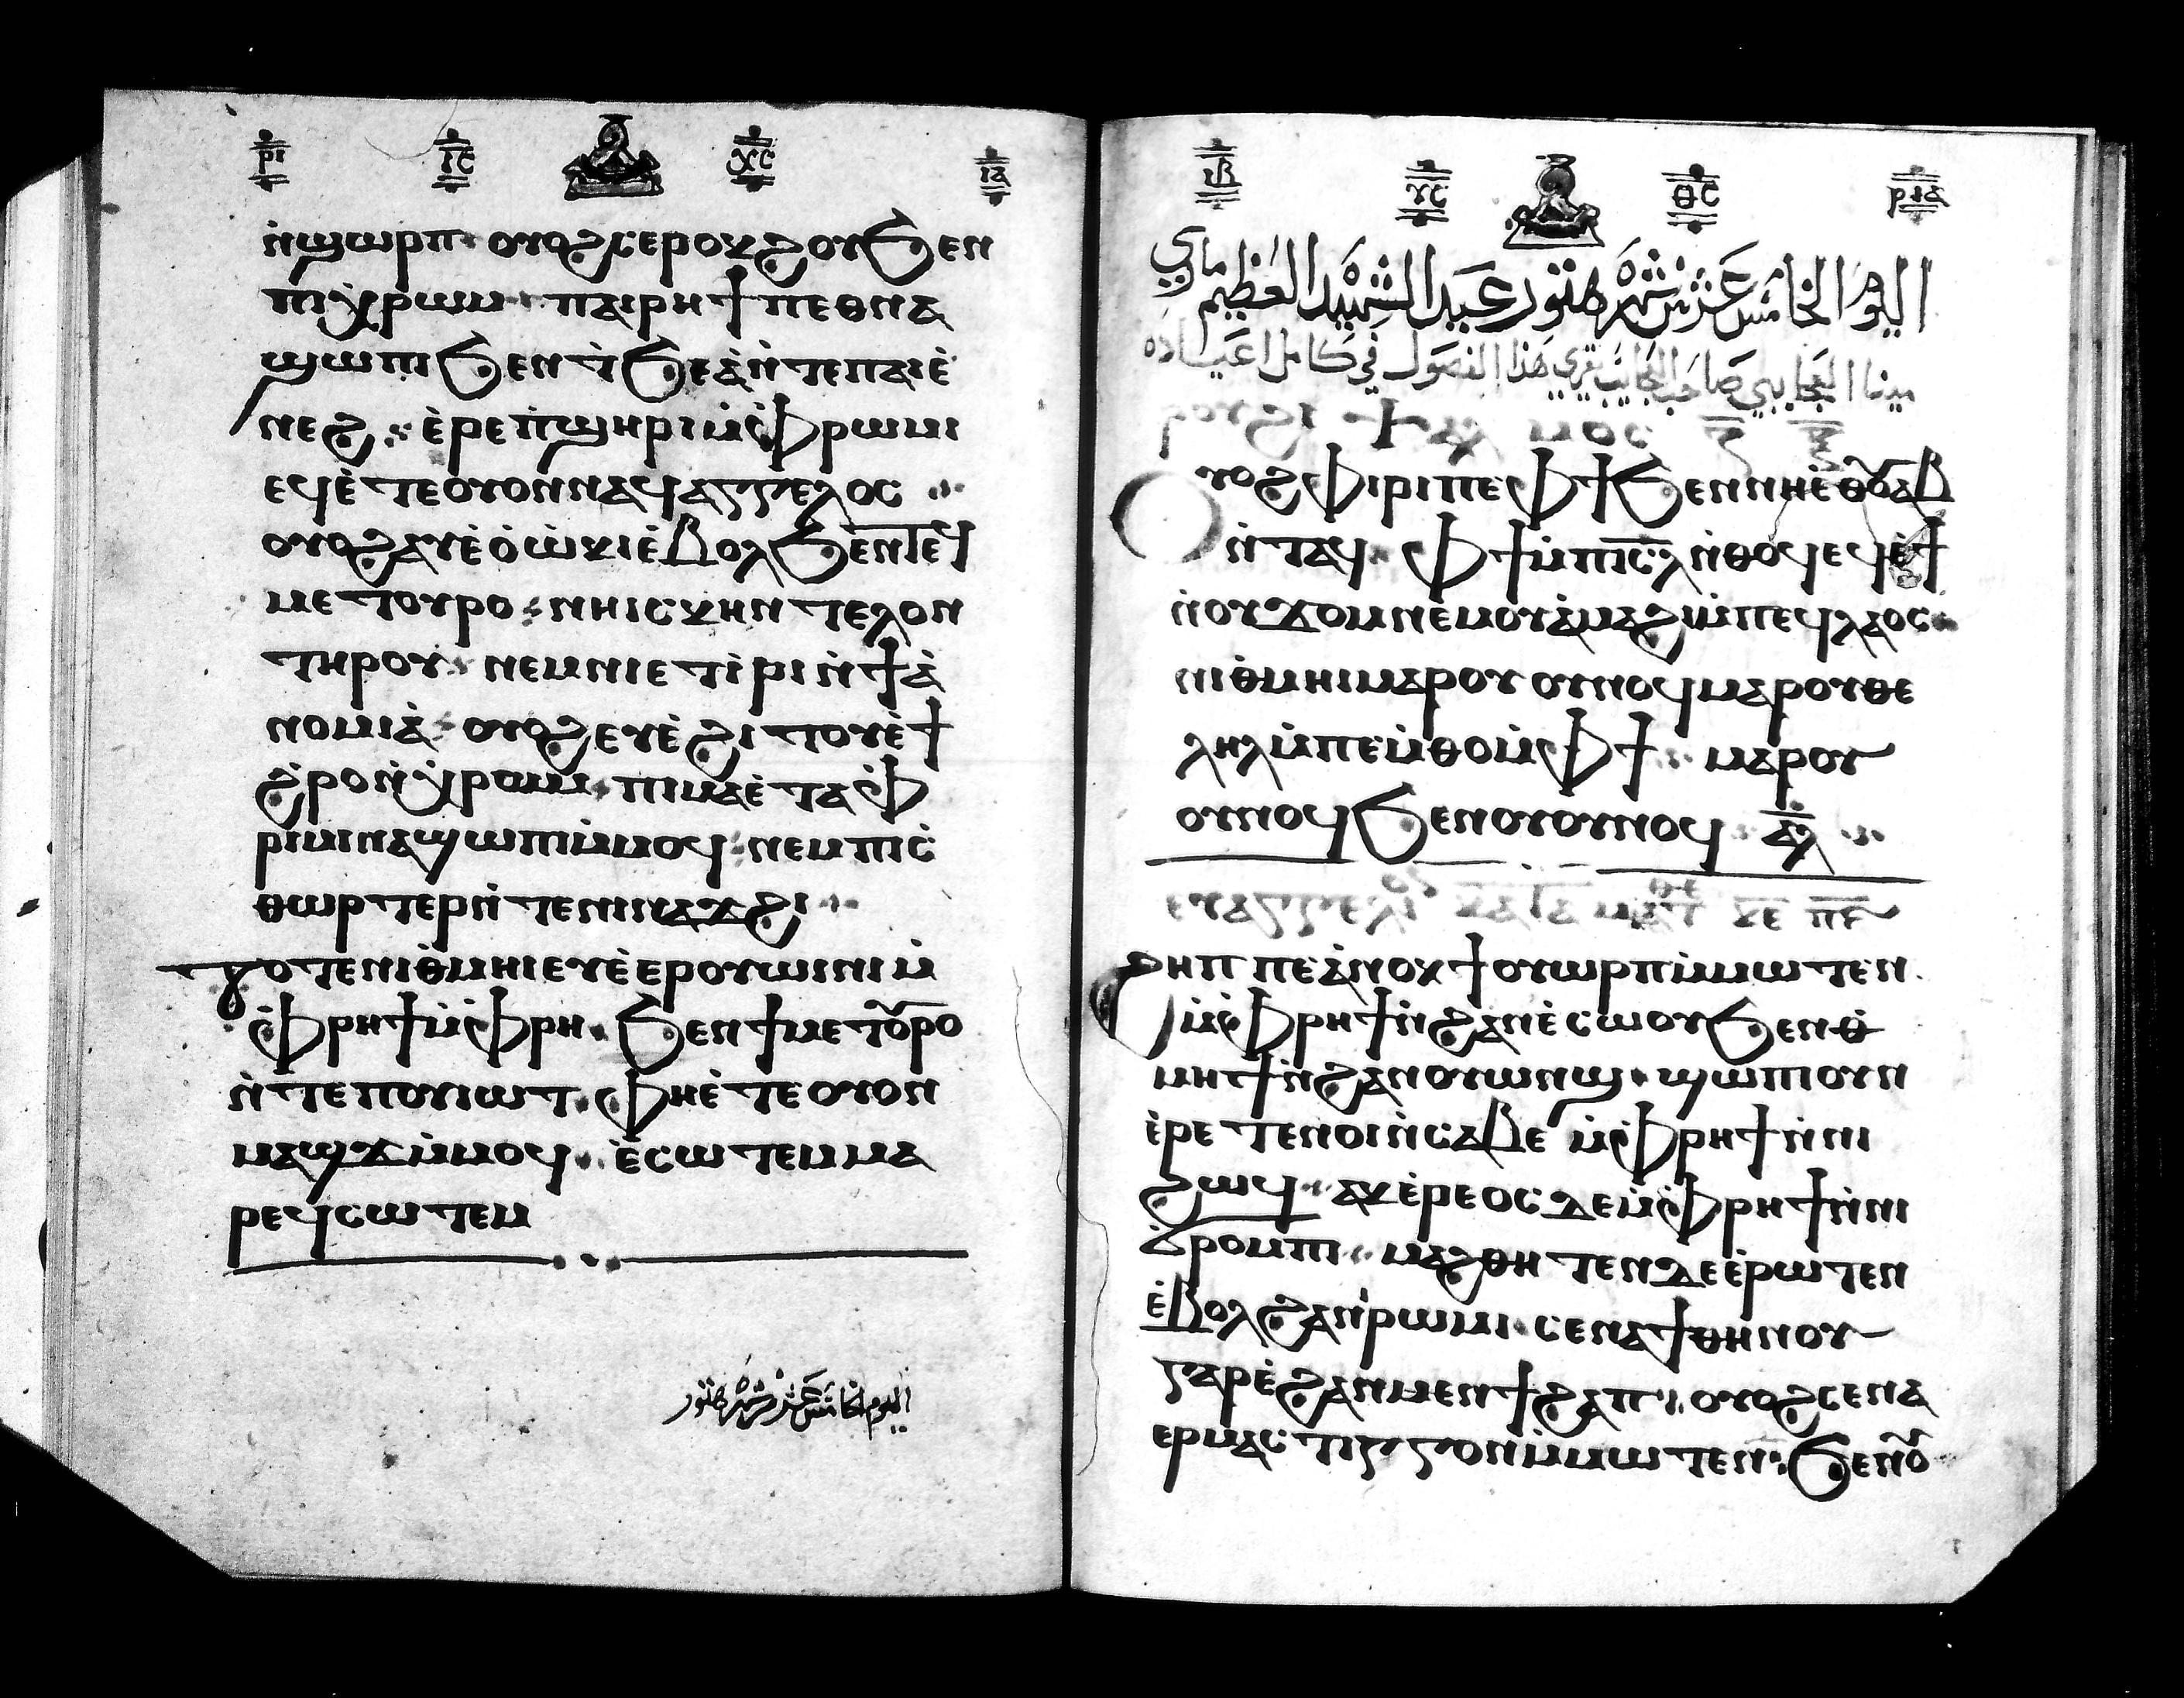 ⲣⲓ ⲓ̅ⲥ̅ ⲭ̅ⲥ̅ ⲓⲁ
ⲛ̀ϣⲱⲣⲡ ⲟⲩⲟϩ ⲥⲉⲣⲟⲕϩⲟⲩ ϧⲉⲛ
ⲡⲓⲭ̀ⲣⲱⲙ ⲡⲁⲓⲣⲏϯ ⲡⲉⲑⲛⲁ
ϣⲱⲡⲓ ϧⲉⲛ ⲧ̀ϧⲉⲁ̀ⲛ̀ⲧⲉ ⲡⲁⲓⲉ̀
ⲛⲉϩ ⲉ̀ⲣⲉ ⲡ̀ϣⲏⲣⲓ ⲙ̀ⲫ̀ⲣⲱⲙⲓ
ⲉϥⲉ̀ⲧⲉⲟⲩⲟⲛⲛⲁϥⲁⲅⲅⲉⲗⲟⲥ
ⲟⲩⲟϩ ⲁⲩⲉ̀ⲟ̀ⲱ̀ⲕⲓ ⲉ̀ⲃⲟⲗ ϧⲉⲛ ⲧⲉϥ
ⲙⲉⲧⲟⲩⲣⲟ ⲛⲏⲓⲥⲕⲏⲛⲧⲉⲗⲟⲛ
ⲧⲏⲣⲟⲩ ⲛⲉⲙ ⲛⲓⲉⲧⲓ̀ⲣⲓ ⲛ̀ϯⲁ̀
ⲛⲟⲙⲓⲁ̀ ⲟⲩⲟϩ ⲉⲩⲉ̀ϩⲓⲧⲟⲩ ⲉ̀ϯ
ϩ̀ⲣⲟ ⲛ̀ⲭ̀ⲣⲟⲙ ⲡⲓⲙⲁ ⲉ̀ⲧⲁ ⲫ̀
ⲣⲓⲙⲓ ⲛⲁϣⲱⲡⲓ ⲙ̀ⲙⲟϥ ⲛⲉⲙ ⲡⲓⲥ̀
ⲑⲱⲣⲧⲉⲣ ⲛ̀ⲧⲉ ⲛⲓⲛⲁϫϩⲓ
ⲧⲟⲧⲉ ⲛⲓⲑ̀ⲙⲏⲓ ⲉⲩⲉ̀ⲉⲣⲟⲩⲱⲓⲛⲓ ⲙ̀
ⲫ̀ⲣⲏϯ ⲙ̀ⲫ̀ⲣⲏ ϧⲉⲛ ϯⲙⲉⲧⲟ̅ⲣⲟ
ⲛ̀ⲧⲉ ⲡⲟⲩⲓⲱⲧ ⲫⲏⲉ̀ⲧⲉ ⲟⲩⲟⲛ
ⲙⲁϣϫ ⲙ̀ⲙⲟϥ ⲉ̀ⲥⲱⲧⲉⲙ ⲙⲁ
ⲣⲉϥⲥⲱⲧⲉⲙ
اليوم الخامس عشر من شهر هتور
ⲓⲃ ⲩⲥ ⲑⲥ ⲣⲓⲁ
اليوم الخامس عشر من شهر هتور عيد الشهيد العظيم ماري
مينا العجايبي صاحب العجايب تقري هذا الفصول في كامل اعياده
ⲣⲟⲩϩⲓ ⲯⲁⲗⲙⲟⲥ
ⲟⲩⲟϩ ϥⲓⲣⲓ ⲡⲉ ⲫϯ ϧⲉⲛ ⲛⲏⲉⲑⲟ̅ⲩⲁⲃ
ⲛ̀ⲧⲁϥ ⲫϯ ⲙ̀ⲡⲓⲥ̅ⲗ̅ ⲛ̀ⲑⲟϥ ⲉϥⲉ̀ϯ
ⲛ̀ⲟⲩϫⲟⲙ ⲛⲉⲙ ⲟⲩⲁ̀ⲙⲁϩⲓ ⲙ̀ⲡⲉϥⲗⲁⲟⲥ
ⲛⲓⲑ̀ⲙⲏⲓ ⲙⲁⲣⲟⲩ ⲟⲩⲛⲟϥ ⲙⲁⲣⲟⲩⲑⲉ
ⲗⲏⲗ ⲙ̀ⲡⲉⲙ̀ⲑⲟ ⲙ̀ⲫϯ ⲙⲁⲣⲟⲩ
ⲟⲩⲛⲟϥ ϧⲉⲛ ⲟⲩⲟⲩⲛⲟϥ ⲁ̅ⲗ̅
ⲉⲩⲁⲅⲅⲉⲗⲓⲟⲛ ⲕⲁⲧⲁ ⲙⲁⲧⲑⲉ
ϩⲏⲡⲡⲉ ⲁ̀ⲛⲟⲕ ϯⲟⲩⲱⲣⲡ ⲙ̀ⲙⲱⲧⲉⲛ
ⲙ̀ⲫ̀ⲣⲏϯ ⲛ̀ϩⲁⲛⲉ̀ⲥⲱⲟⲩ ϧⲉⲛ ⲑ̀
ⲙⲏϯ ⲛ̀ϩⲁⲛⲟⲩⲱⲛϣ ϣⲱⲡⲓ ⲟⲩⲛ
ⲉ̀ⲣⲉⲧⲉⲛⲟⲓ ⲛ̀ⲥⲁⲃⲉ ⲙ̀ⲫ̀ⲣⲏϯ ⲛ̀ⲛⲓ
ϩⲱϥ ⲁⲕⲉ̀ⲣⲉⲟⲥ ⲇⲉ ⲙ̀ⲫ̀ⲣⲏϯ ⲛ̀ⲛⲓ
ϭ̀ⲣⲟⲙⲡⲓ ⲙⲁϩⲑⲏⲧⲉⲛ ⲇⲉ ⲉ̀ⲣⲱⲧⲉⲛ
ⲉ̀ⲃⲟⲗ ϩⲁ ⲛⲓⲣⲱⲙⲓ ⲥⲉⲛⲁϯⲑⲏⲛⲟⲩ
ⲅⲁⲣ ⲉ̀ϩⲁⲛⲙⲉⲛϯϩⲁⲡ ⲟⲩⲟϩ ⲥⲉⲛⲁ
ⲉⲣⲙⲁⲥⲧⲓⲅⲅⲟⲛ ⲙ̀ⲙⲱⲧⲉⲛ ϧⲉⲛ ⲟ̅